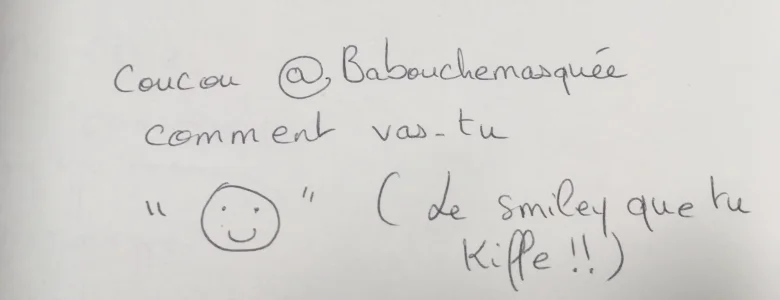 Coucou @Babouchemasquée
comment vas-tu
" ☺ " (Le smiley que tu
Kiffe !!)